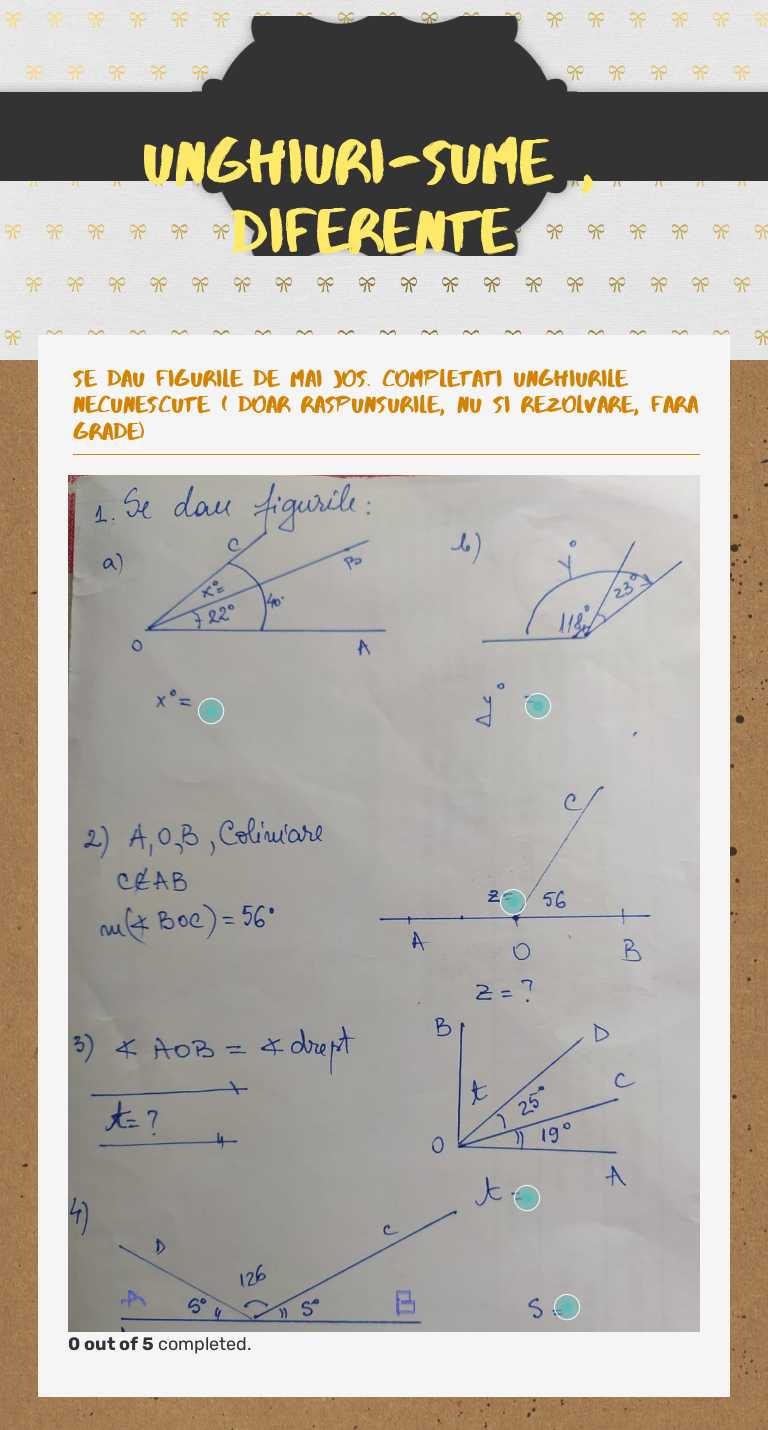 UNGHIURI-SUME ,
DIFERENTE
SE DAU FIGURILE DE MAI JOS. COMPLETATI UNGHIURILE
NECUNESCUTE ( DOAR RASPUNSURILE, NU SI REZOLVARE, FARA
GRADE)
1. Se dau figurile:
a)
C
B
x°=
22°
40°
O
A
x°=
b)
y°
118°
23°
y° =
2) A,O,B, Coliniare
C∉AB
m(∢ BOC) = 56°
C
z=
56
A
O
B
z = ?
3) ∢ AOB = ∢ drept
t= ?
B
D
t
25°
C
19°
O
A
t =
4)
D
C
126
A
S°
S°
B
S =
0 out of 5 completed.